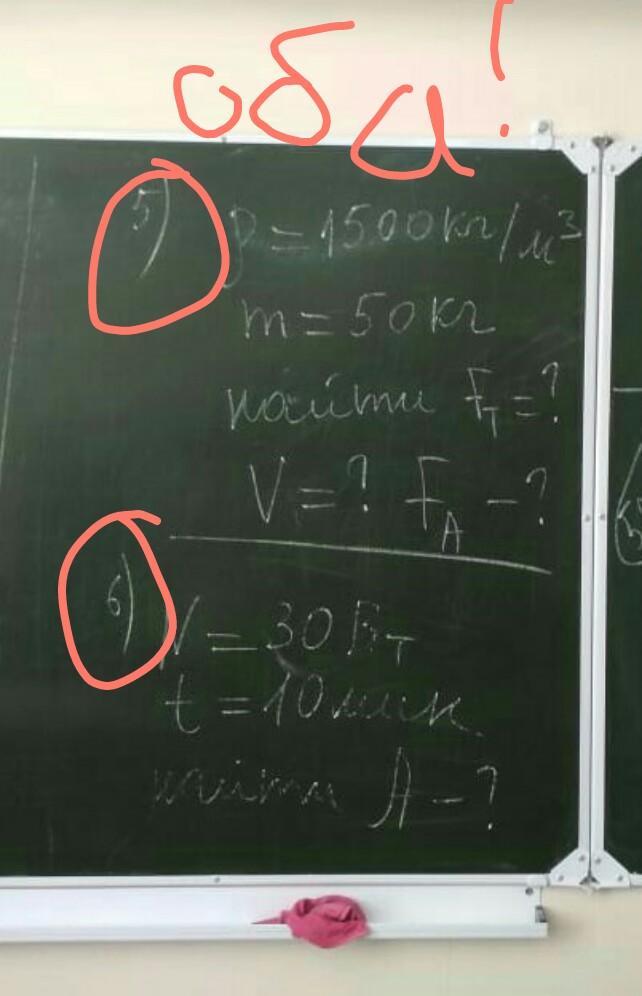 оба!
5) ρ = 1500 кг/м³
m = 50 кг
найти Fт = ?
V = ? FA - ?
6) N = 30 Вт
t = 10 мин
найти A - ?